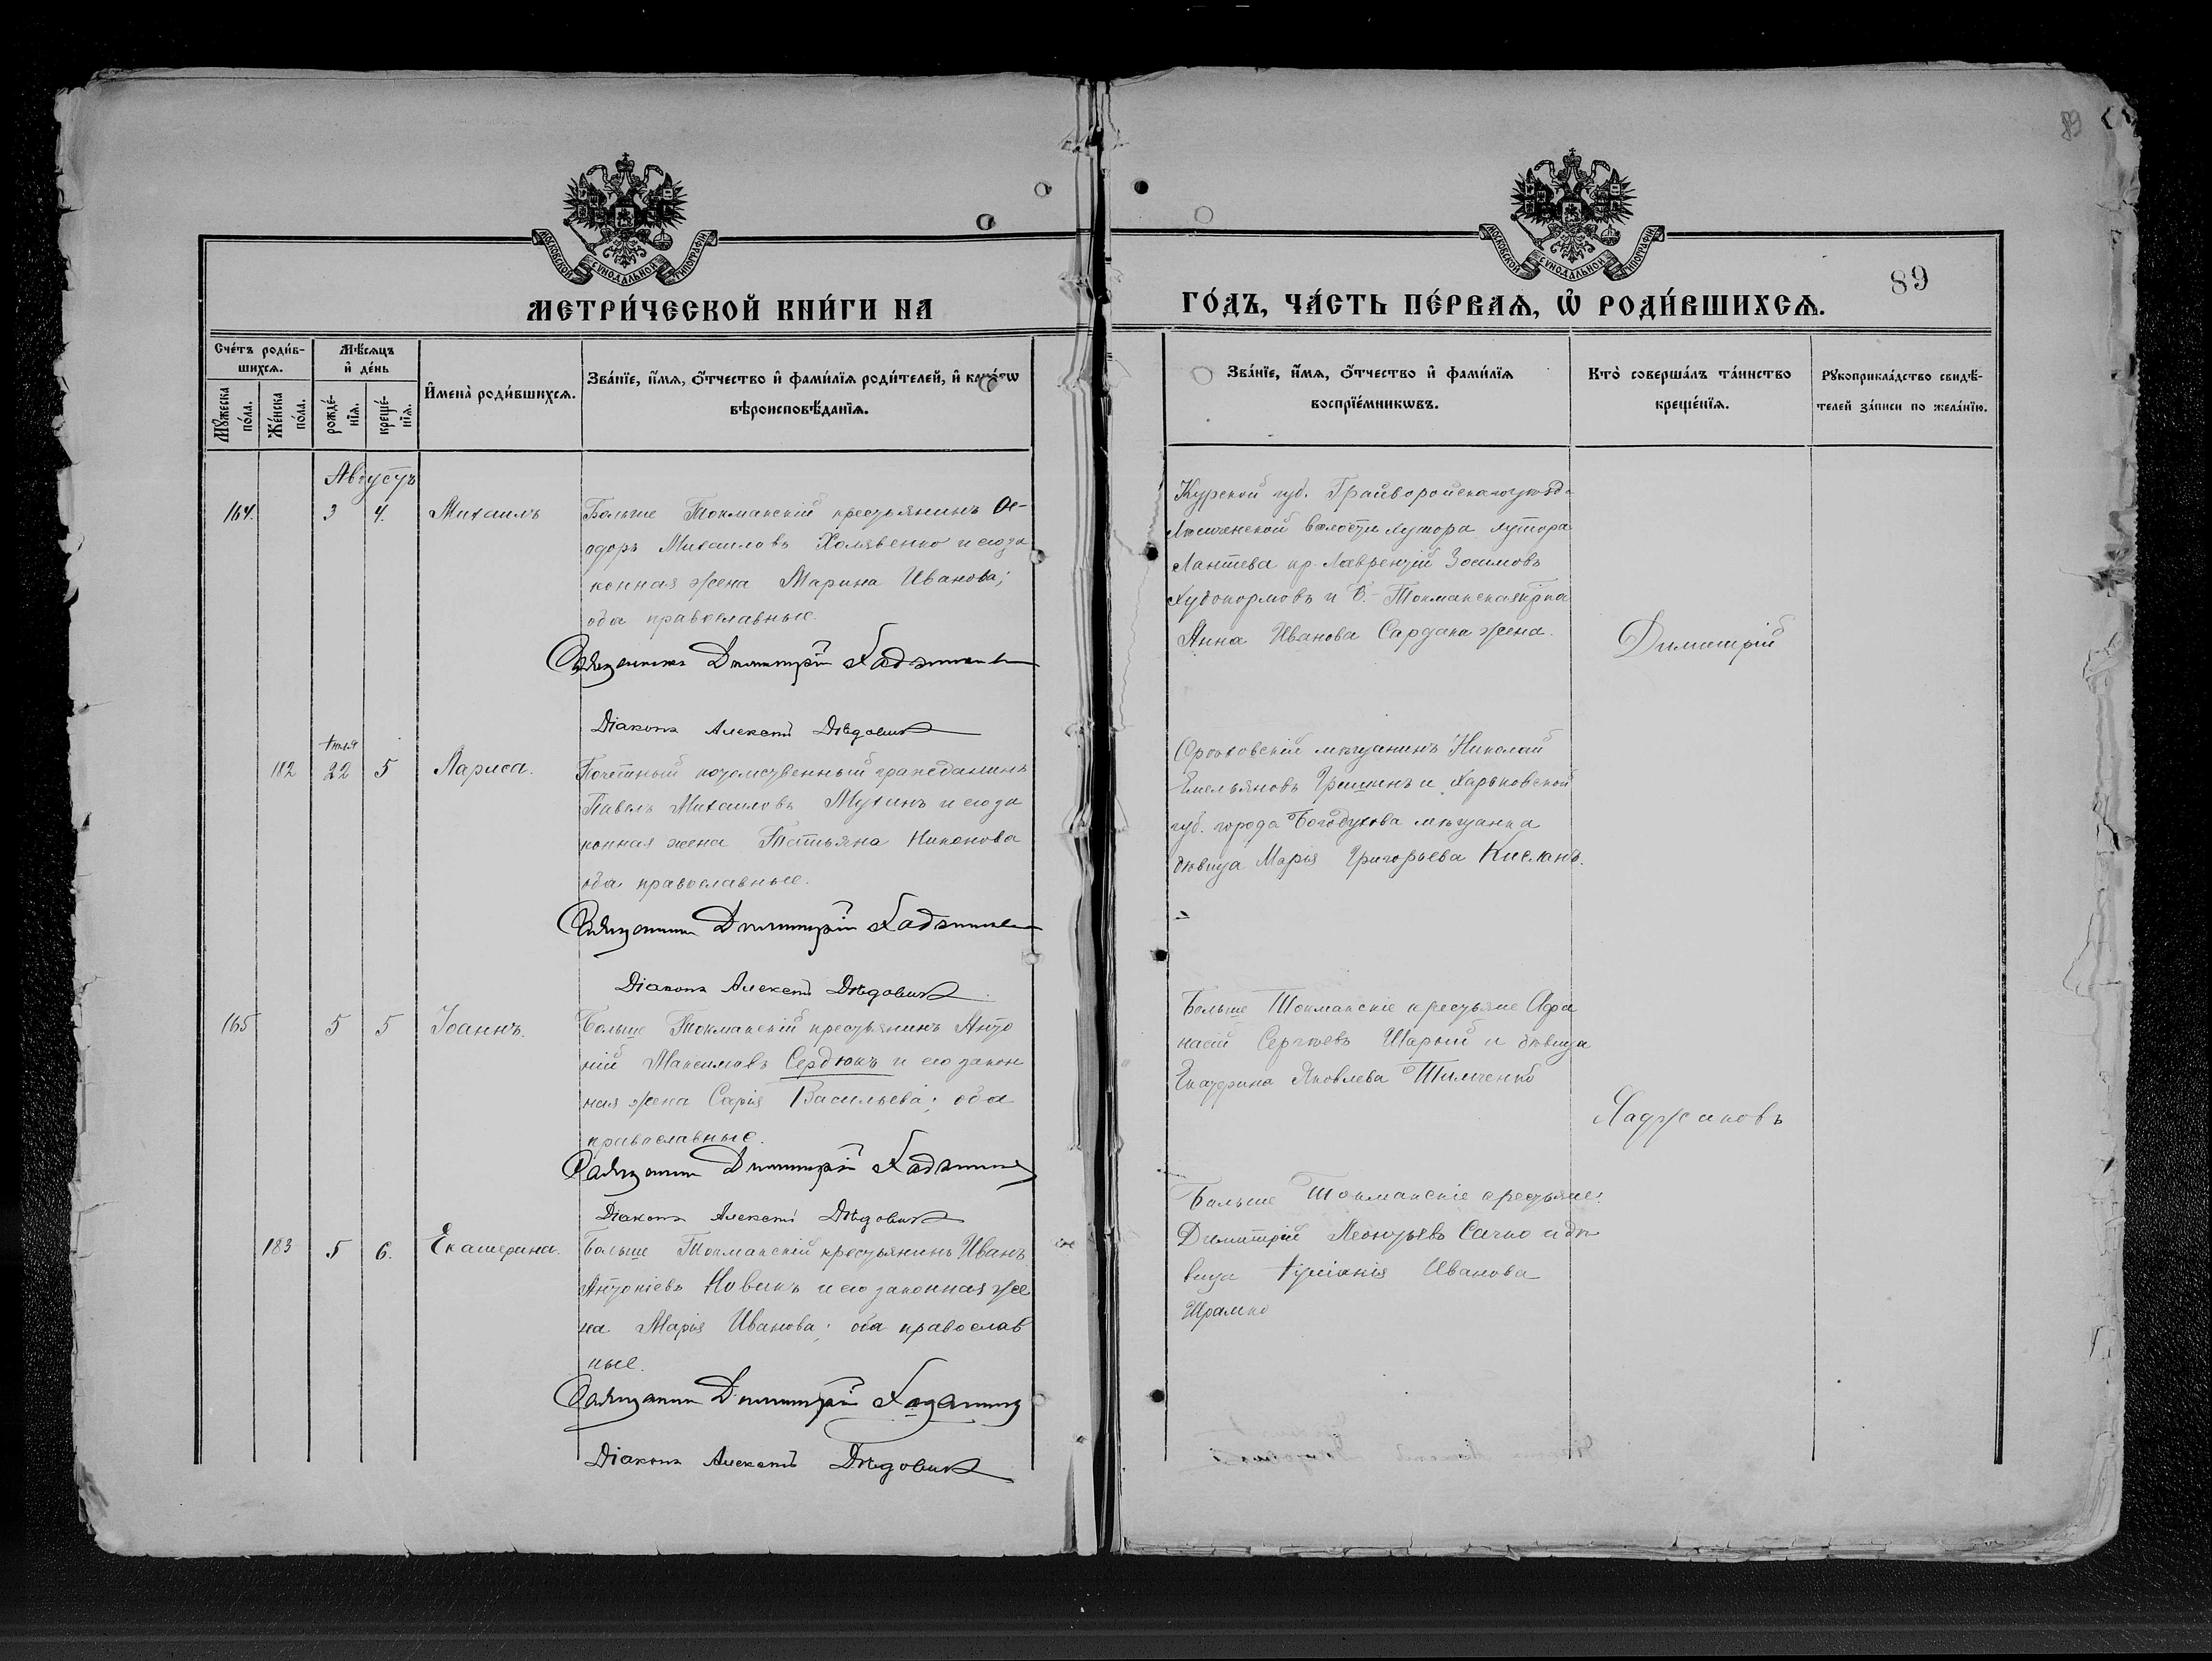 89
МОСКОВСКОЙ СУНОДАЛЬНОЙ ТИПОГРАФІИ
МОСКОВСКОЙ СУНОДАЛЬНОЙ ТИПОГРАФІИ
89
МЕТРИ́ЧЕСКОЙ КНИ́ГИ НА
ГО́ДЪ, ЧА́СТЬ ПЕ́РВАѦ, Ѡ҆ РОДИ́ВШИХСѦ.
Сче́тъ роди́в-
шихсѧ.
Мꙋ́жеска по́ла.
Же́нска по́ла.
Мѣ́сѧцъ
и҆ де́нь
рожде́-нїѧ.
креще́-нїѧ.
И҆мена̀ роди́вшихсѧ.
Зва́нїе, и҆́мѧ, ѻ҆́тчество и҆ фами́лїѧ роди́телей, и҆ како́гѡ
вѣроисповѣ́данїѧ.
Зва́нїе, и҆́мѧ, ѻ҆́тчество и҆ фами́лїѧ
воспрїе́мникѡвъ.
Кто̀ соверша́лъ та́инство
креще́нїѧ.
Рꙋкоприкла́дство свидѣ́-
телей за́писи по жела́нїю.
Августъ
164.
3
4.
Михаилъ
Больше Токмакскій крестьянинъ Ѳе-
одоръ Михаиловъ Холявенко и его за
конная жена Марина Иванова;
оба православные.
Священникъ Димитрій Хаджиновъ
Діаконъ Алексѣй Дѣдовичъ
Курской губ. Грайворонскаго уѣзда
волости хутора хутора
кр. Лаврентій Зосимовъ
Худокормовъ и Б.-Токмакская кр-ка
Анна Иванова жена.
Димитрій
182
Іюля
22
5
Лариса.
Почетный потомственный гражданинъ
Павелъ Михаиловъ Мухинъ и его за
конная жена Татьяна Никонова
оба православные.
Священникъ Димитрій Хаджиновъ
Діаконъ Алексѣй Дѣдовичъ
Орѣховскій мѣщанинъ Николай
Емельяновъ Гришинъ и Харьковской
губ. города Богодухова мѣщанка
дѣвица Марія Григорьева
165
5
5
Іоаннъ.
Больше Токмакскій крестьянинъ Анто
ній Максимовъ Сердюкъ и его закон
ная жена Васильева; оба
православные.
Священникъ Димитрій Хаджиновъ
Діаконъ Алексѣй Дѣдовичъ
Больше Токмакскіе крестьяне Афа
насій Сергѣевъ Шарый и дѣвица
Екатерина Яковлева Тимченко
Хаджиновъ
183
5
6.
Екатерина.
Больше Токмакскій крестьянинъ Иванъ
Антоніевъ Новикъ и его законная же
на Марія Иванова; оба православ
ные.
Священникъ Димитрій Хаджиновъ
Діаконъ Алексѣй Дѣдовичъ
Больше Токмакскіе крестьяне:
Димитрій Леонтьевъ Сачко и дѣ
вица Иванова
Шрамко